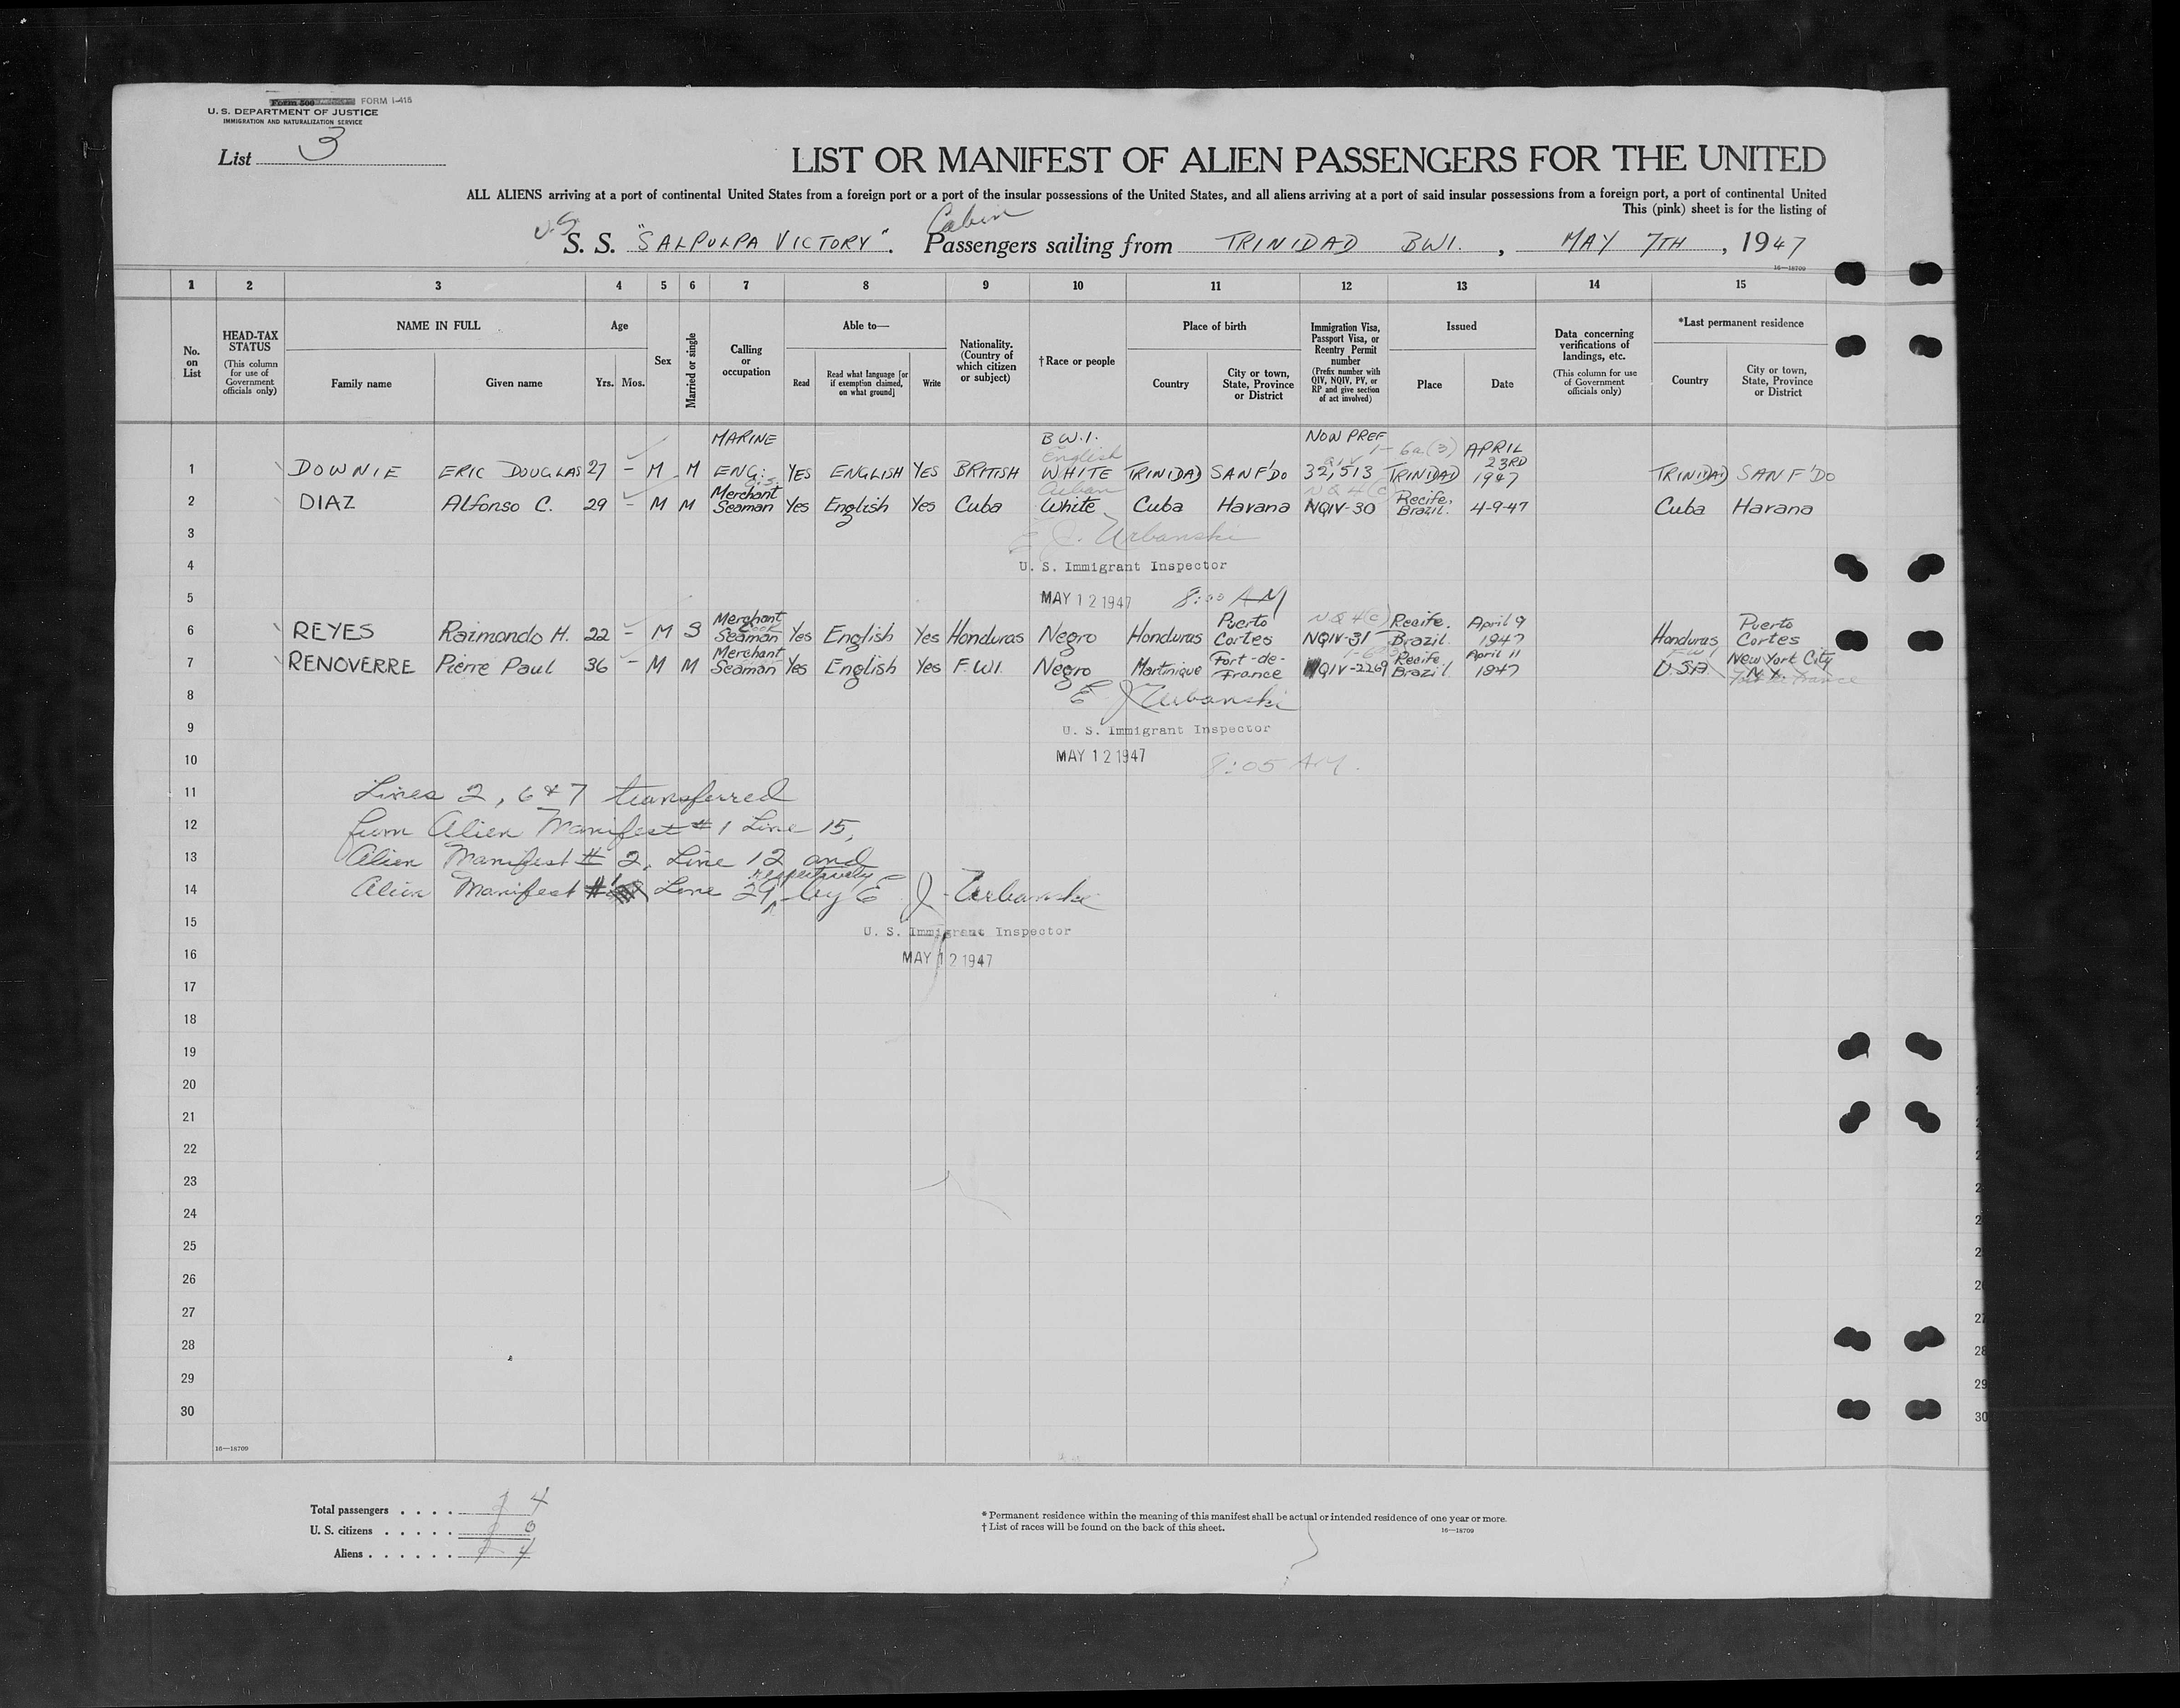 FORM I-415
U. S. DEPARTMENT OF JUSTICE
IMMIGRATION AND NATURALIZATION SERVICE
List 3
LIST OR MANIFEST OF ALIEN PASSENGERS FOR THE UNITED
ALL ALIENS arriving at a port of continental United States from a foreign port or a port of the insular possessions of the United States, and all aliens arriving at a port of said insular possessions from a foreign port, a port of continental United
This (pink) sheet is for the listing of
Cabin
U.S. S. S. "SALPULPA VICTORY". Passengers sailing from TRINIDAD BWI. , MAY 7TH , 1947
16—18709
1 2 3 4 5 6 7 8 9 10 11 12 13 14 15
No. on List
HEAD-TAX STATUS (This column for use of Government officials only)
NAME IN FULL
Family name Given name
Age
Yrs. Mos.
Sex
Married or single
Calling or occupation
Able to—
Read Read what language [or if exemption claimed, on what ground] Write
Nationality. (Country of which citizen or subject)
†Race or people
Place of birth
Country City or town, State, Province or District
Immigration Visa, Passport Visa, or Reentry Permit number (Prefix number with QIV, NQIV, PV, or RP and give section of act involved)
Issued
Place Date
Data concerning verifications of landings, etc. (This column for use of Government officials only)
*Last permanent residence
Country City or town, State, Province or District
MARINE B.W.I. NON PREF
English QIV 1-6a(3) APRIL 23RD
1 DOWNIE ERIC DOUGLAS 27 - M M ENG: YES ENGLISH YES BRITISH WHITE TRINIDAD SAN F'DO 32,513 TRINIDAD 1947 TRINIDAD SAN F'DO
Merchant Cuban NQ 4(c) Recife,
2 DIAZ Alfonso C. 29 - M M Seaman Yes English Yes Cuba White Cuba Havana NQIV-30 Brazil. 4-9-47 Cuba Havana
3 E. J. Urbanski
4 U. S. Immigrant Inspector
5 MAY 12 1947 8:00 AM
Merchant Puerto NQ 4(c) Recife. April 9 Puerto
6 REYES Raimondo H. 22 - M S Seaman Yes English Yes Honduras Negro Honduras Cortes NQIV-31 Brazil. 1947 Honduras Cortes
Merchant Fort-de- Recife April 11 F W I New York City
7 RENOVERRE Pierre Paul 36 - M M Seaman Yes English Yes F.W.I. Negro Martinique France QIV-2269 Brazil. 1947 U.S.A. N.Y. Fort de France
8 E J Urbanski
9 U. S. Immigrant Inspector
10 MAY 12 1947 8:05 AM.
11 Lines 2, 6 & 7 transferred
12 from Alien Manifest #1 Line 15,
13 Alien Manifest # 2, Line 12 and
respectively
14 Alien Manifest #1 Line 29, by E J. Urbanski
15 U. S. Immigrant Inspector
16 MAY 12 1947
17
18
19
20
21
22
23
24
25
26
27
28
29
30
16—18709
Total passengers . . . . 4
U. S. citizens . . . . . 0
Aliens . . . . . . 4
* Permanent residence within the meaning of this manifest shall be actual or intended residence of one year or more.
† List of races will be found on the back of this sheet.
16—18709